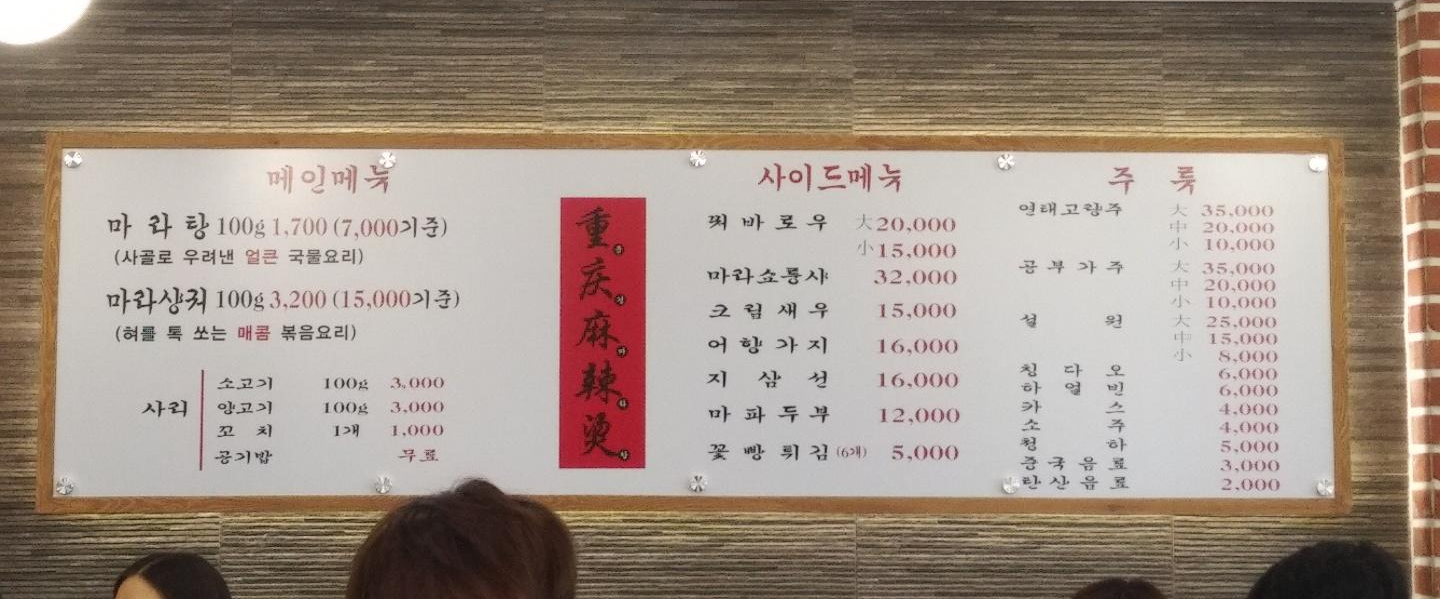 메인메뉴
마라탕 100g 1,700 (7,000기준)
(사골로 우려낸 얼큰 국물요리)
마라샹궈 100g 3,200 (15,000기준)
(혀를 톡 쏘는 매콤 볶음요리)
사리
소고기 100g 3,000
양고기 100g 3,000
꼬치 1개 1,000
공기밥 무료
重 중
庆 경
麻 마
辣 라
烫 탕
사이드메뉴
꿔바로우 大 20,000
小 15,000
마라쇼룽샤 32,000
크림새우 15,000
어향가지 16,000
지삼선 16,000
마파두부 12,000
꽃빵튀김 (6개) 5,000
주류
연태고량주 大 35,000
中 20,000
小 10,000
공부가주 大 35,000
中 20,000
小 10,000
설원 大 25,000
中 15,000
小 8,000
칭다오 6,000
하얼빈 6,000
카스 4,000
소주 4,000
청하 5,000
중국음료 3,000
탄산음료 2,000